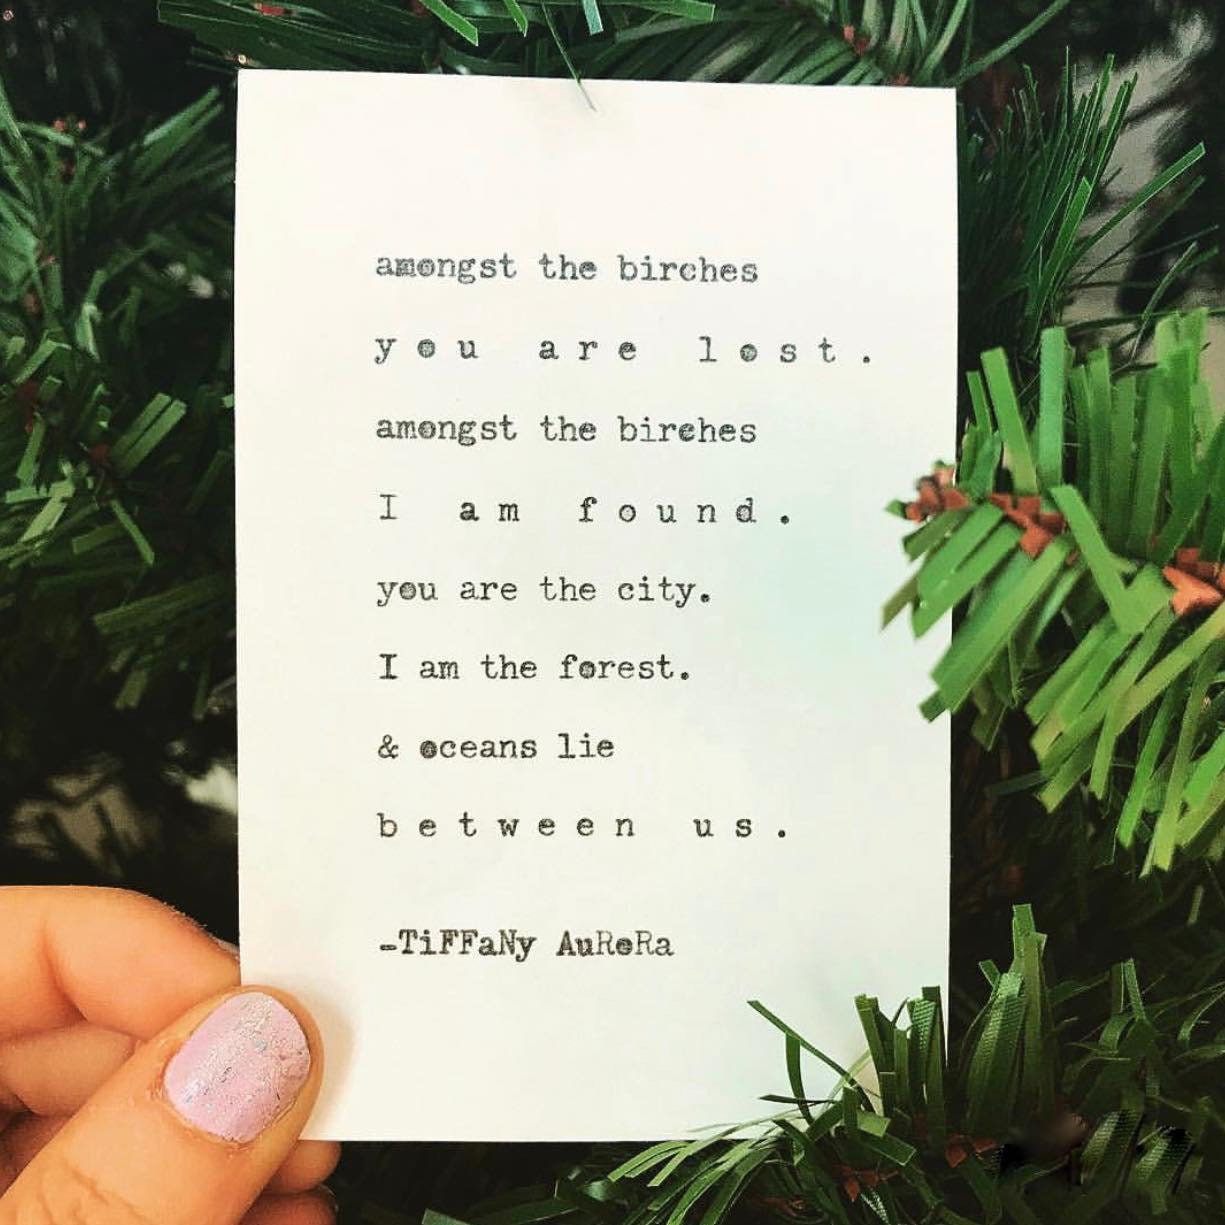 amongst the birches
you are lost.
amongst the birches
I am found.
you are the city.
I am the forest.
& oceans lie
between us.
-TiFFaNy AuRoRa